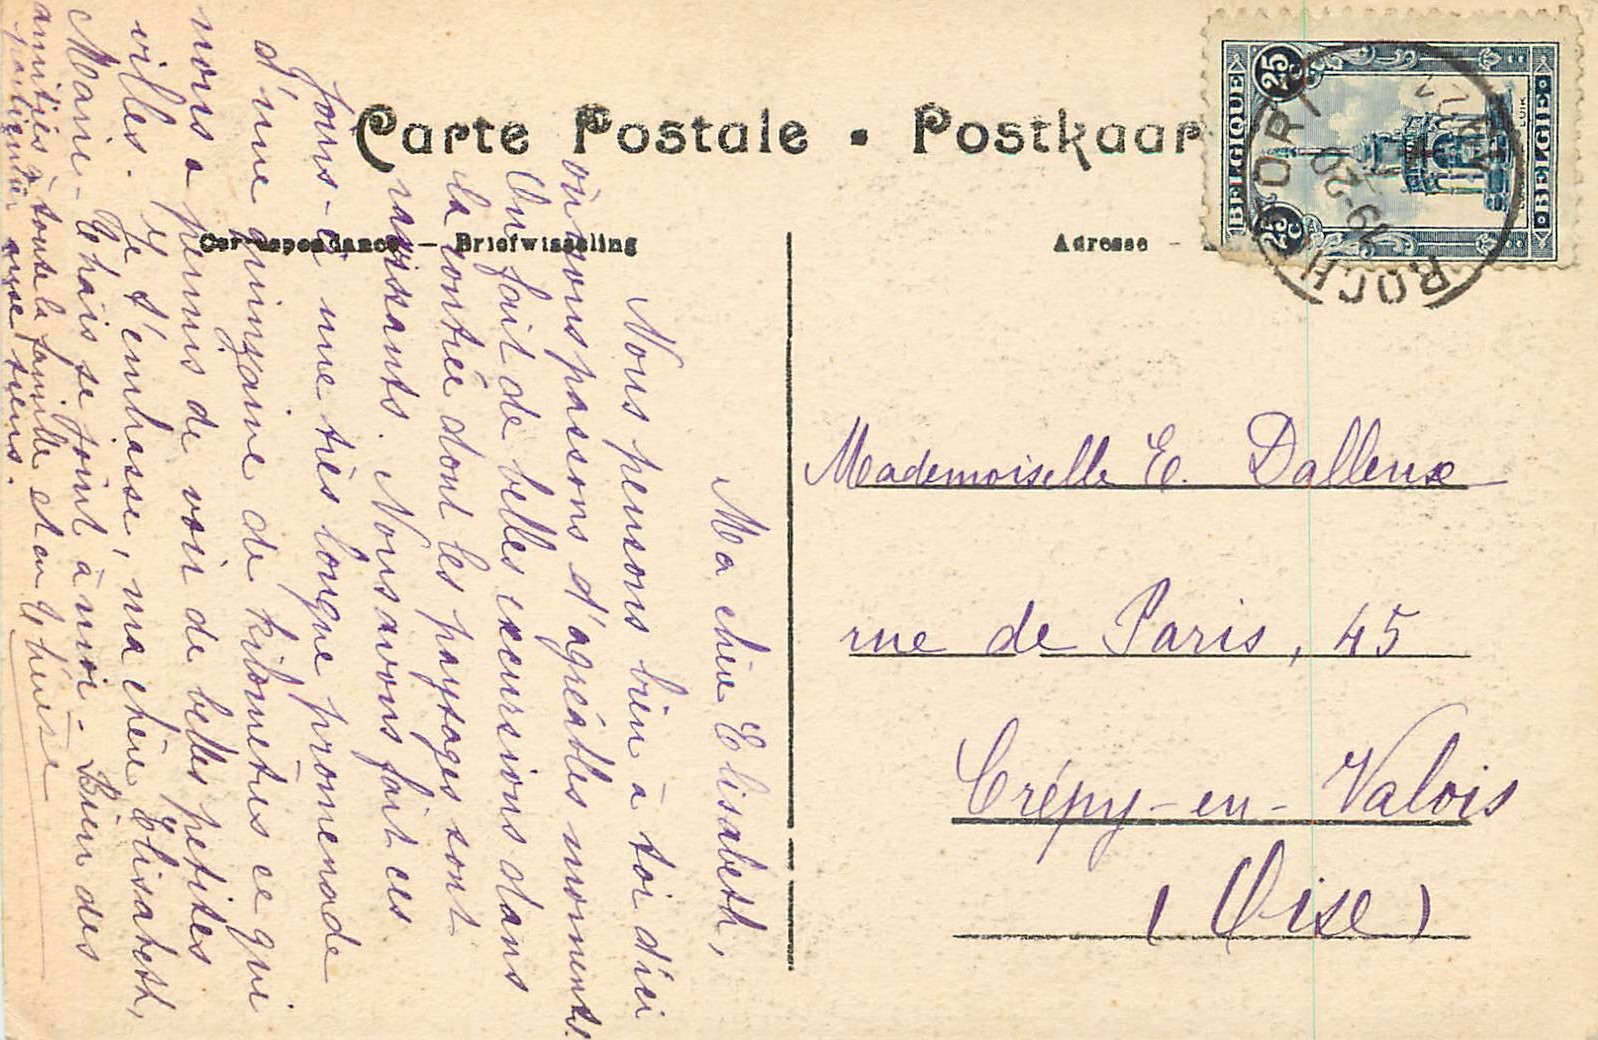 Carte Postale • Postkaar
Correspondance – Briefwisseling
Adresse -
BELGIQUE
BELGIË
25 c
25 c
ROCHEFORT
19-20
Ma chère Elisabeth,
Nous pensons bien à toi d'ici
où nous passons d'agréables moments.
On fait de belles excursions dans
la contrée dont les paysages sont
ravissants. Nous avons fait ces
jours-ci une très longue promenade
d'une quinzaine de kilomètres ce qui
nous a permis de voir de belles petites
villes. Je t'embrasse, ma chère Elisabeth,
Marie-Thaïs se joint à moi - Bien des
amitiés à toute la famille et en
particulier aux tiens.
Thérèse
Mademoiselle E. Dalleux
rue de Paris, 45
Crépy-en-Valois
(Oise)